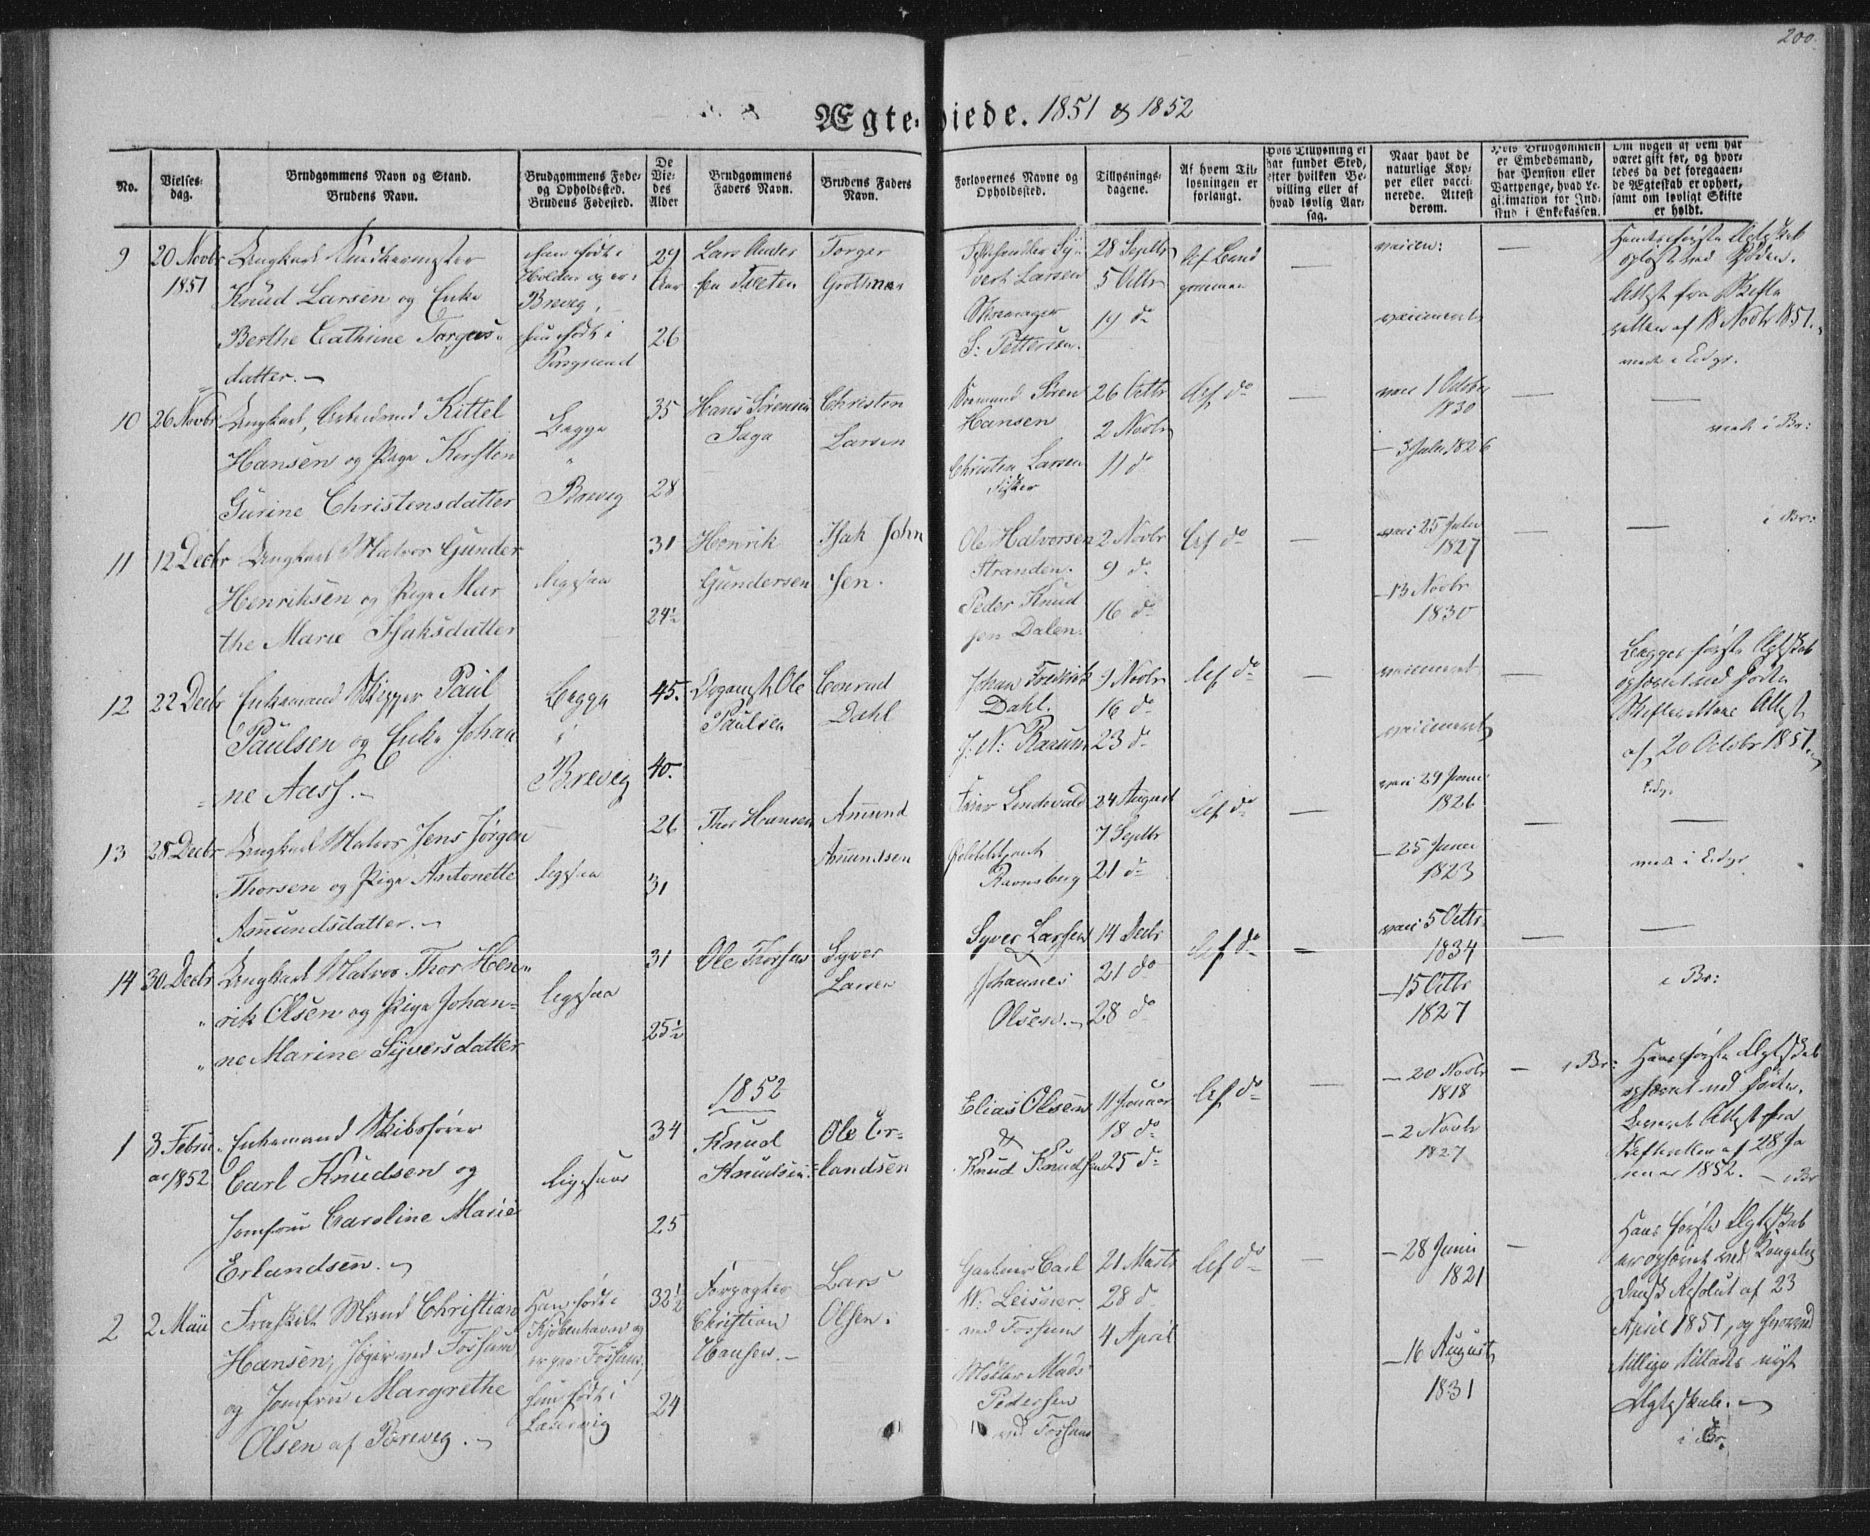 200.
Ægteviede. 1851 & 1852
No.
Vielses-
dag.
Brudgommens Navn og Stand.
Brudens Navn.
Brudgommens Føde-
og Opholdsted.
Brudens Fødested.
De
Vie-
des
Alder
Brudgommens
Faders Navn.
Brudens Faders
Navn.
Forlovernes Navne og
Opholdsted.
Tillysnings-
dagene.
Af hvem Til-
lysningen er
forlangt.
Hvis Tillysning ei
har fundet Sted,
efter hvilken Be-
villing eller af
hvad lovlig Aar-
sag.
Naar havt de
naturlige Kop-
per eller vacci-
nerede. Attest
derom.
Hvis Brudgommen
er Embedsmand,
har Pension eller
Vartpenge, hvad Le-
gitimation for Ind-
skud i Enkekassen.
Om nogen af dem har
været gift før, og hvor-
ledes da det foregaaen-
de Ægteskab er ophørt,
samt om lovligt Skifte
er holdt.
9 20 Novbr 1851
Ungkarl
Knud Larsen og Enke
Berthe Cathrine Torgers-
datter.
Han født i
Holden og er i
Brevig,
hun født i
Porsgrund
29
Aar
26
Lars Ander
sen Tveten
Torger
vert Larsen
S: Pettersen.
28 Septbr
5 Octbr
19 do
Af Brud
gommen
—
vaccineret
—
Attest fra Skifte
retten af 18 Novbr 1851.
10 26 Novbr
Ungkarl, Arbeidsmd Kittel
Hansen og Pige Kirsten
Gurine Christensdatter
Begge
"
Brevig
35
28
Hans Sørensen
Saga
Christen
Larsen
Søren
Hansen
Christen Larsen
Fisker
26 Octbr
2 Novbr
11 do
Af do
—
1830
— 3 Julii 1826
—
—
i Br:
11 12 Decbr
Ungkarl Matros Gunder
Henriksen og Pige Mar
the Marie Isaksdatter
ligesaa
31
24½
Henrik
Gundersen
Isak John
sen.
Ole Halvorsen
Stranden.
Peder Knud
sen Dalen.
2 Novbr
9 do
16 do
Af do
—
vacc 25 Julii
1827
— 13 Novbr
1830
—
—
i Br:
12 22 Decbr
Enkemand Skipper Paul
Paulsen og Enke Johan
ne Aass.
Begge
"
Brevig
45.
40.
Ole
Paulsen
Conrad
Dahl
Johan Fredrik
Dahl.
J. N: Rasum
9 Novbr
16 do
23 do
Af do
—
vaccineret
vaccineret
—
Begges første Ægteskab
ophævet ved Døden
Skifterettens Attest
af 20 Octobr 1851.
13 28 Decbr
Ungkarl Matros Jens Jørgen
Thorsen og Pige Antonette
Amundsdatter.
ligesaa
26
31
Thor Hansen
Amund
Amundsen
Ravnsberg
24 August
7 Septbr
21 do
Af do
—
1826
— 25 Junii
1823
—
—
14 30 Decbr
Ungkarl Matros Thor Hen-
rik Olsen og Pige Johan-
ne Marine Syversdatter
ligesaa
31
25½
Ole Thorsen
Syver
Larsen
Syver Larsen
&
Johannes
Olsen.
14 Decbr
21 do
28 do
Af do
—
vacc 5 Octbr
1834
— 15 Octbr
1827
—
—
i Br:
1852
1 3 Febru
ar 1852
Enkemand Skibsfører
Carl Knudsen og
Jomfru Caroline Marie
Erlandsen.
ligesaa
34
25
Knud
Knudsen
Ole Er-
landsen
Elias Olsen
&
Knud Knudsen
11 Januar
18 do
25 do
Af do
—
— 20 Novbr
1818
— 2 Novbr
1827
—
i Br:
Hans første Ægteskab
ophævet ved Døden.
Skifteretten af 28 Ja
nuar 1852. — i Br
2 2 Maii
Fraskilt Mand Christian
Hansen, Jæger ved Fossum
og Jomfru Margrethe
Olsen af Brevig.
Han født i
Kjøbenhavn og
er paa Fossum,
hun født i
Laurvig
32½
24
Forpagter
Christian
Hansen.
Lars
Olsen.
Gartner Carl
W: Leisner
ved Fossum
Møller Mads
Pedersen
ved Fossum
21 Marts
28 do
4 April
Af do
—
— 28 Junii
1821
— 16 August
1831
—
Hans første Ægteskab
er ophævet ved Kongelig
Dansk Resolut af 23
April 1851, og
Ægteskab.
i Br.